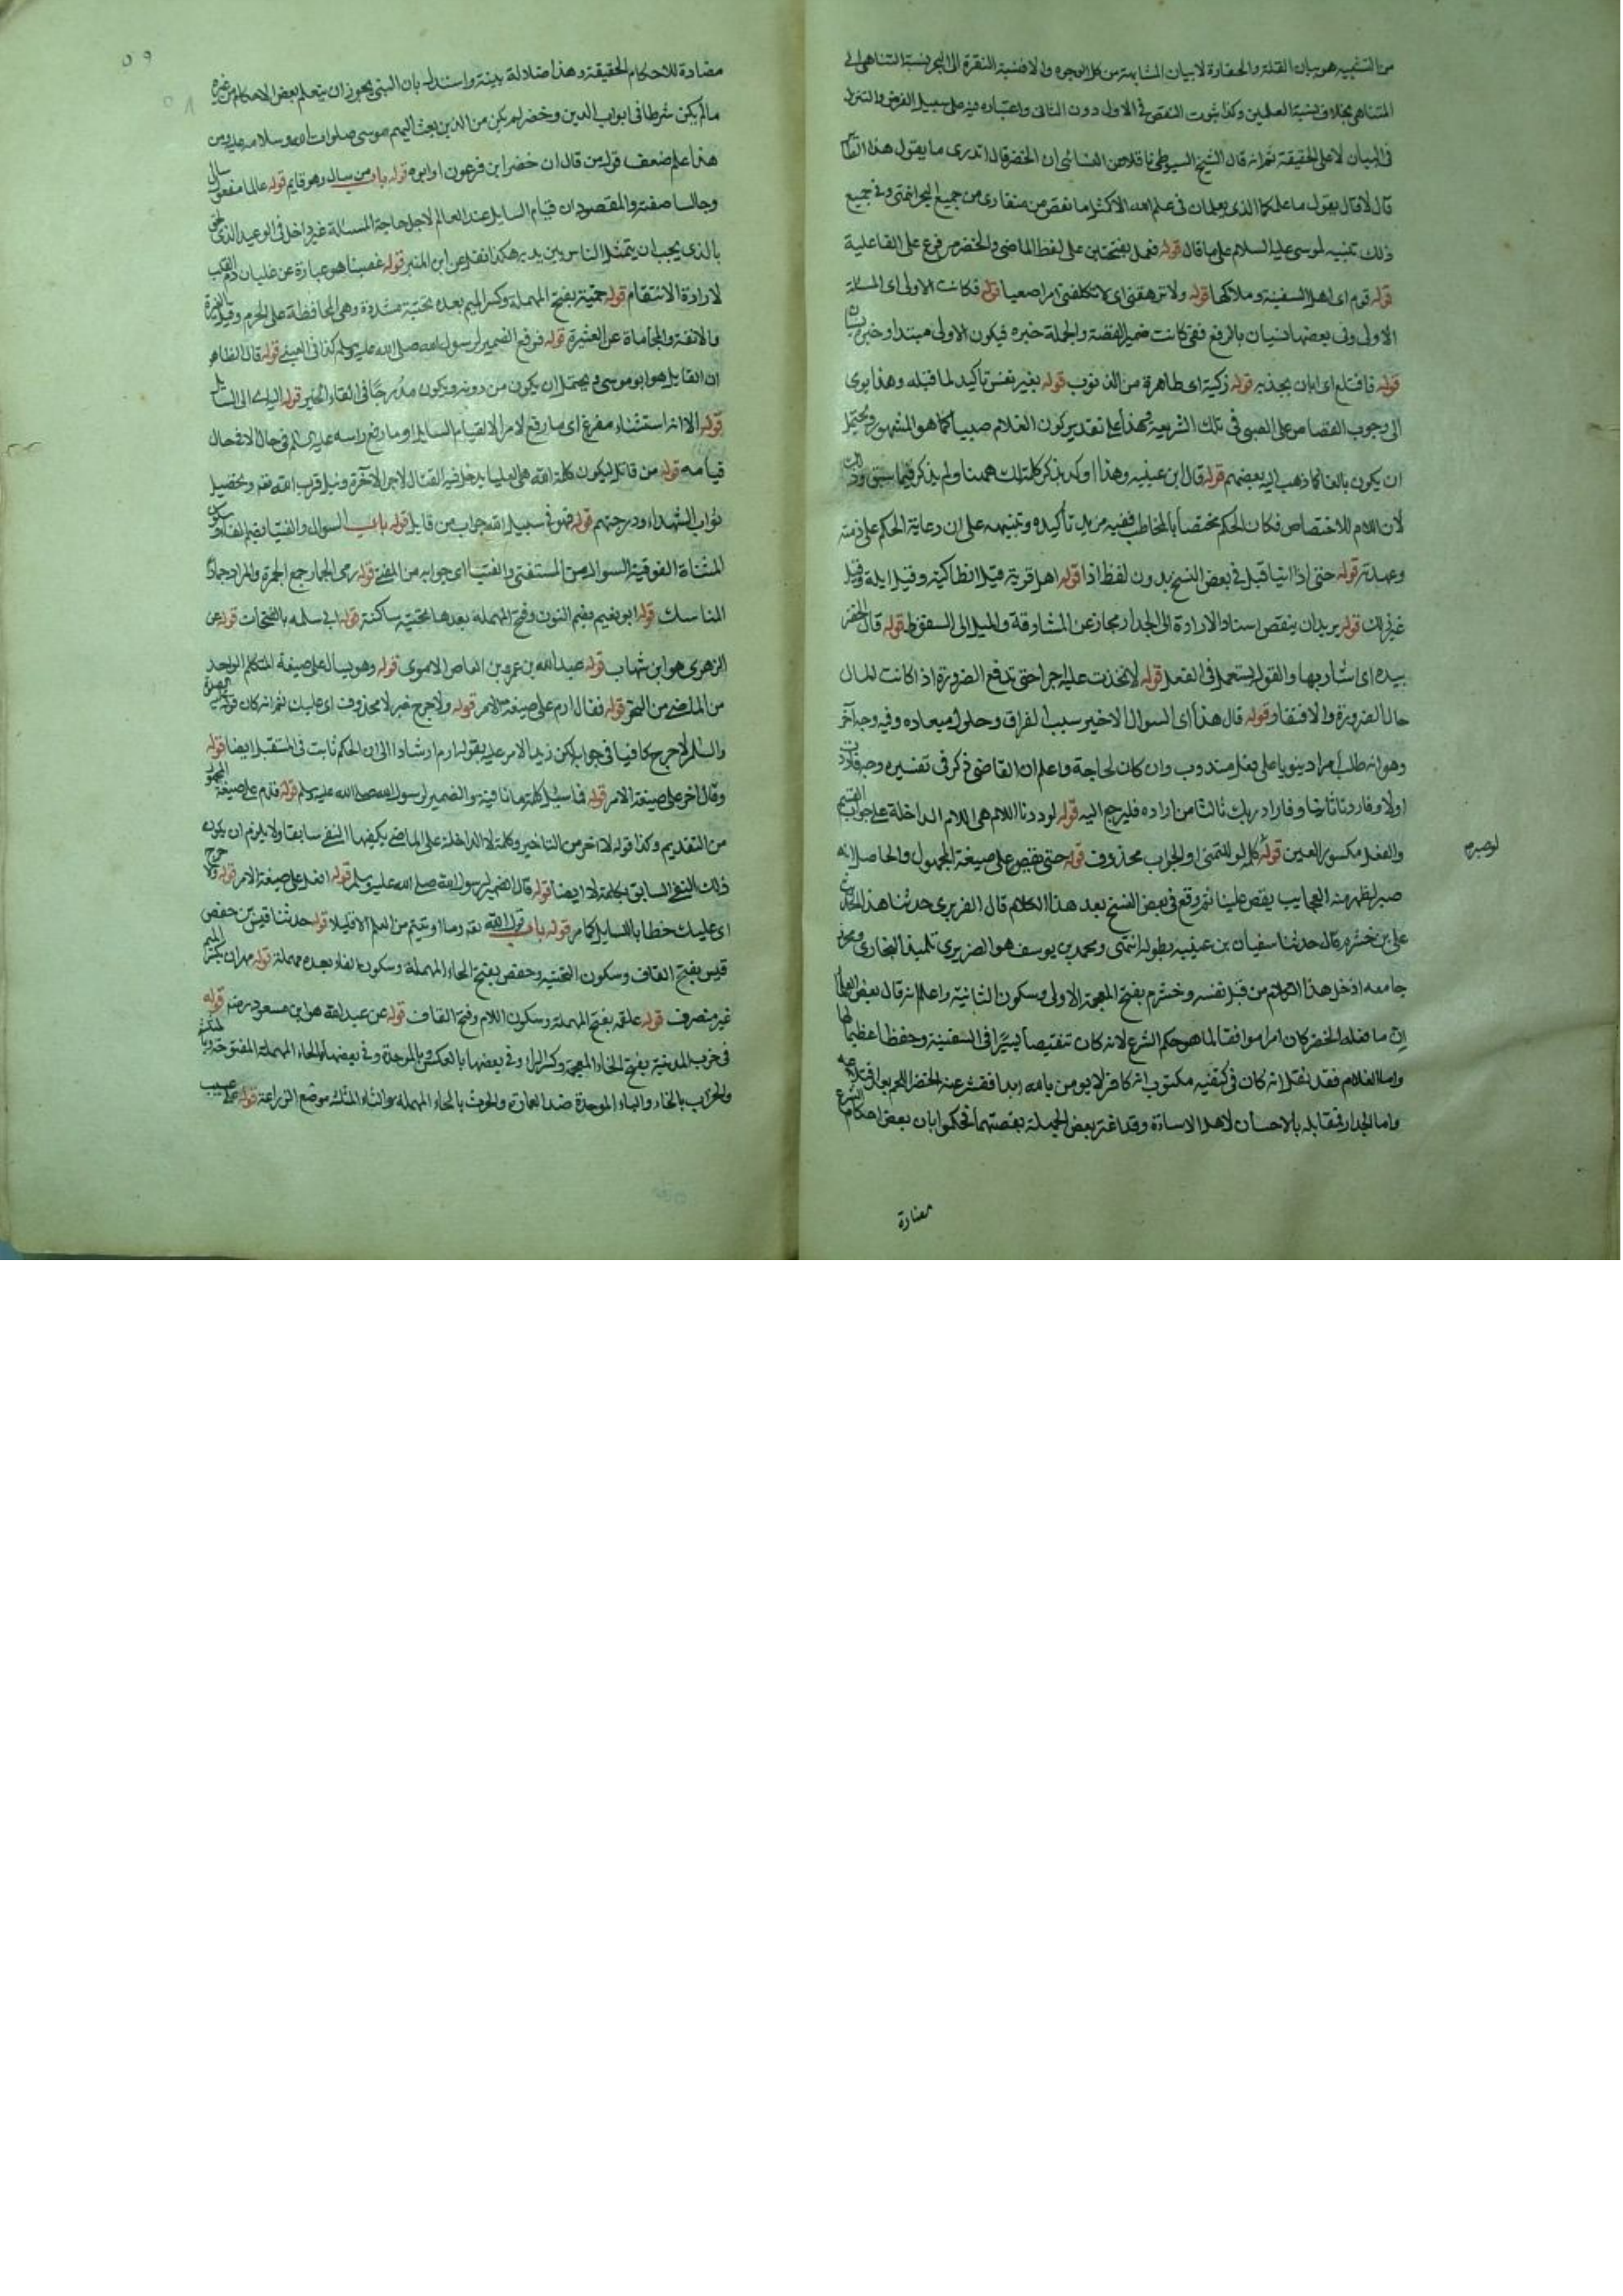 من التشبيه هو بيان القلة والحقارة لا بيان المشابهة من كل الوجوه والا فنسبة النقرة الى البحر نسبة المتناهى الى
المتناهى بخلاف نسبة العلمين وكذا ثبوت النقص فى الاول دون الثانى واعتباره فيه على سبيل الفرض والتنزل
فى البيان لا على الحقيقة ثم انه قال الشيخ السيوطى ناقلا عن النسائى ان الخضر قال اتدرى ما يقول هذا الطائر
قال لا قال يقول ما علمكما الذى تعلمان فى علم الله الا كمثل ما نقص من منقارى من جميع البحر انتهى وفى جميع
ذلك تنبيه لموسى عليه السلام على ما قال قوله فحمل بفتحتين على لفظ الماضى والخضر مرفوع على الفاعلية
قوله قوم اى اهل السفينة وملاكها قوله ولا ترهقنى اى لا تكلفنى امرا صعبا قوله فكانت الاولى اى المسئلة
الاولى وفى بعضها نسيان بالرفع ففى كانت ضمير القصة والجملة خبره فيكون الاولى مبتدا وخبره نسيان
قوله فاقتلع اى ابان بجذبه قوله زكية اى طاهرة من الذنوب قوله بغير نفس تأكيد لما قبله وهذا يومى
الى وجوب القصاص على الصبى فى تلك الشريعة وهذا على تقدير كون الغلام صبيا كما هو المشهور ويحتمل
ان يكون بالغا كما ذهب اليه بعضهم قوله قال ابن عيينه وهذا اوكد بذكر كلمة لك ههنا ولم يذكر فيما سبق وذلك
لان اللام للاختصاص فكان الحكم مختصا بالمخاطب ففيه مزيد تأكيده وتنبيهه على ان رعاية الحكم على ذمته
وعهدته قوله حتى اذا اتيا قيل فى بعض النسخ بدون لفظ اذا قوله اهل قرية قيل انطاكية وقيل ايلة وقيل
غير ذلك قوله يريد ان ينقض اسناد الارادة الى الجدار مجاز عن المشارفة والميل الى السقوط قوله قال الخضر
بيده اى اشار بها والقول يستعمل فى الفعل قوله لاتخذت عليه اجرا حتى تدفع الضرورة اذ كانت الحال
حال الضرورة والافتقار قوله قال هذا اى السوال الاخير سبب الفراق وحلول ميعاده وفيه وجه آخر
وهو انه طلب مرادا دنيويا على فعل مندوب وان كان لحاجة واعلم ان القاضى ذكر فى تفسيره وجه فاردت
اولا وفاردنا ثانيا وفاراد ربك ثالثا من اراده فليرجع اليه قوله لوددنا اللام هى اللام الداخلة على جواب القسم
والفعل مكسور العين قوله كلمه لو للتمنى او الجواب محذوف قوله حتى يقص على صيغة المجهول والحاصل انه
لو صبر
صبر لظهر منه العجايب يقص علينا ثم وقع فى بعض النسخ بعد هذا الكلام قال الفربرى حدثنا هذا الحديث
على بن خشرم قال حدثنا سفيان بن عيينه بطوله انتهى ومحمد بن يوسف هو الفربرى تلميذ البخارى
جامعه ادخل هذا الكلام من قبل نفسه وخشرم بفتح المعجمة الاولى وسكون الثانية واعلم انه قال بعض العلما
ان ما فعله الخضر كان امرا موافقا لما هو حكم الشرع لانه كان تنقيصا يسيرا فى السفينة وحفظا عظيما لها
واما الغلام فقد نقل انه كان فى كتفيه مكتوب انه كافر لا يومن بالله ابدا فقشر عنه الخضر اللحم بعد اقتلاعه
واما الجدار فمقابلة بالاحسان لاهل الاساءة وقد اغتر بعض الجهلة بقصتهما فحكموا بان بعض احكام الشرع
مضادة
٥٩
مضادة للاحكام الحقيقة وهذا ضلالة بينة واستدل به بان النبى يجوز ان يتعلم بعض الاحكام من غيره
ما لم يكن شرطا فى ابواب الدين وخضر لم يكن من الذين بعث اليهم موسى صلوات الله وسلامه عليه ومن
هذا علم ضعف قول من قال ان خضر ابن فرعون او ابوه قوله باب من سال وهو قايم قوله عالما مفعول سال
وجالسا صفته والمقصود ان قيام السايل عند العالم لاجل حاجة المسئالة غير داخل فى الوعيد الذى لحق
بالذى يحب ان يتمثل الناس بين يديه هكذا نقل عن ابن المنير قوله غضبا هو عبارة عن غليان دم القلب
لارادة الانتقام قوله حمية بفتح المهملة وكسر الميم بعده تحتية مشددة وهى المحافظة على الحرم وقيل بالغيرة
والانفة والمحاماة عن العشيرة قوله فرفع الضمير لرسول الله صلى الله عليه وسلم كذا فى العينى قوله قال الظاهر
ان القايل هو ابو موسى ويحتمل ان يكون من دونه ويكون مدرجا فى القاء الخبر قوله اليه اى الى السايل
قوله الا انه استثناء مفرغ اى ما رفع لامر الا لقيام السايل او ما رفع راسه عليه السلم فى حال الا فى حال
قيامه قوله من قاتل ليكون كلمة الله هى العليا يدخل فيه القتال لاجل الآخرة ونيل قرب الله تعه وتحصيل
ثواب الشهداء ودرجتهم قوله فهو فى سبيل الله جواب من قايل قوله باب السوال والفتيا بضم الفاء وسكون
المثناة الفوقية السوال من المستفتى والفتيا اى جوابه من المفتى قوله رمى الجمار جمع الجمرة والمراد جمار
المناسك قوله ابو نعيم بضم النون وفتح المهملة بعدها تحتية ساكنة قوله ابى سلمه بالفتحات قوله عن
الزهرى هو ابن شهاب قوله عبد الله بن عمرو بن العاص الاموى قوله وهو يسال على صيغة المتكلم الواحد
من الماضى من النحر قوله فقال ارم على صيغة الامر قوله ولا حرج خبر لا محذوف اى عليك ثم انه كان قوله
والسلم لا حرج كافيا فى جوابه لكن زيد الامر عليه بقوله ارم ارشادا الى ان الحكم ثابت فى المستقبل ايضا قوله
وقال اخر على صيغة الامر قوله فما سئل كلمة ما نافية والضمير لرسول الله صلى الله عليه وسلم قوله قدم على صيغة المجهول
من التقديم وكذا قوله لا اخر من التاخير وكلمة لا الداخلة على الماضى يكفيها النفى سابقا ولا يلزم ان يكون
ذلك النفى السابق بكلمة لا ايضا قوله قال الضمير لرسول الله صلى الله عليه وسلم قوله افعل على صيغة الامر قوله ولا حرج
اى عليك خطابا للسايل كما مر قوله باب قول الله تعه وما اوتيتم من العلم الا قليلا قوله حدثنا قيس بن حفص
قيس بفتح القاف وسكون التحتيه وحفص بفتح الحاء المهملة وسكون الفاء بعده مهملة قوله مهران بكسر الميم
غير منصرف قوله علقمه بفتح المهملة وسكون اللام وفتح القاف قوله عن عبد الله هو ابن مسعود رضه قوله
فى خرب المدينة بفتح الخاء المعجمة وكسر الراء وفى بعضها بالعكس بالموحدة وفى بعضها بالحاء المهملة المفتوحة
والخرب بالخاء والباء الموحدة ضد العمارة والحرث بالحاء المهملة والثاء المثلثه موضع الزراعة قوله على عسيب